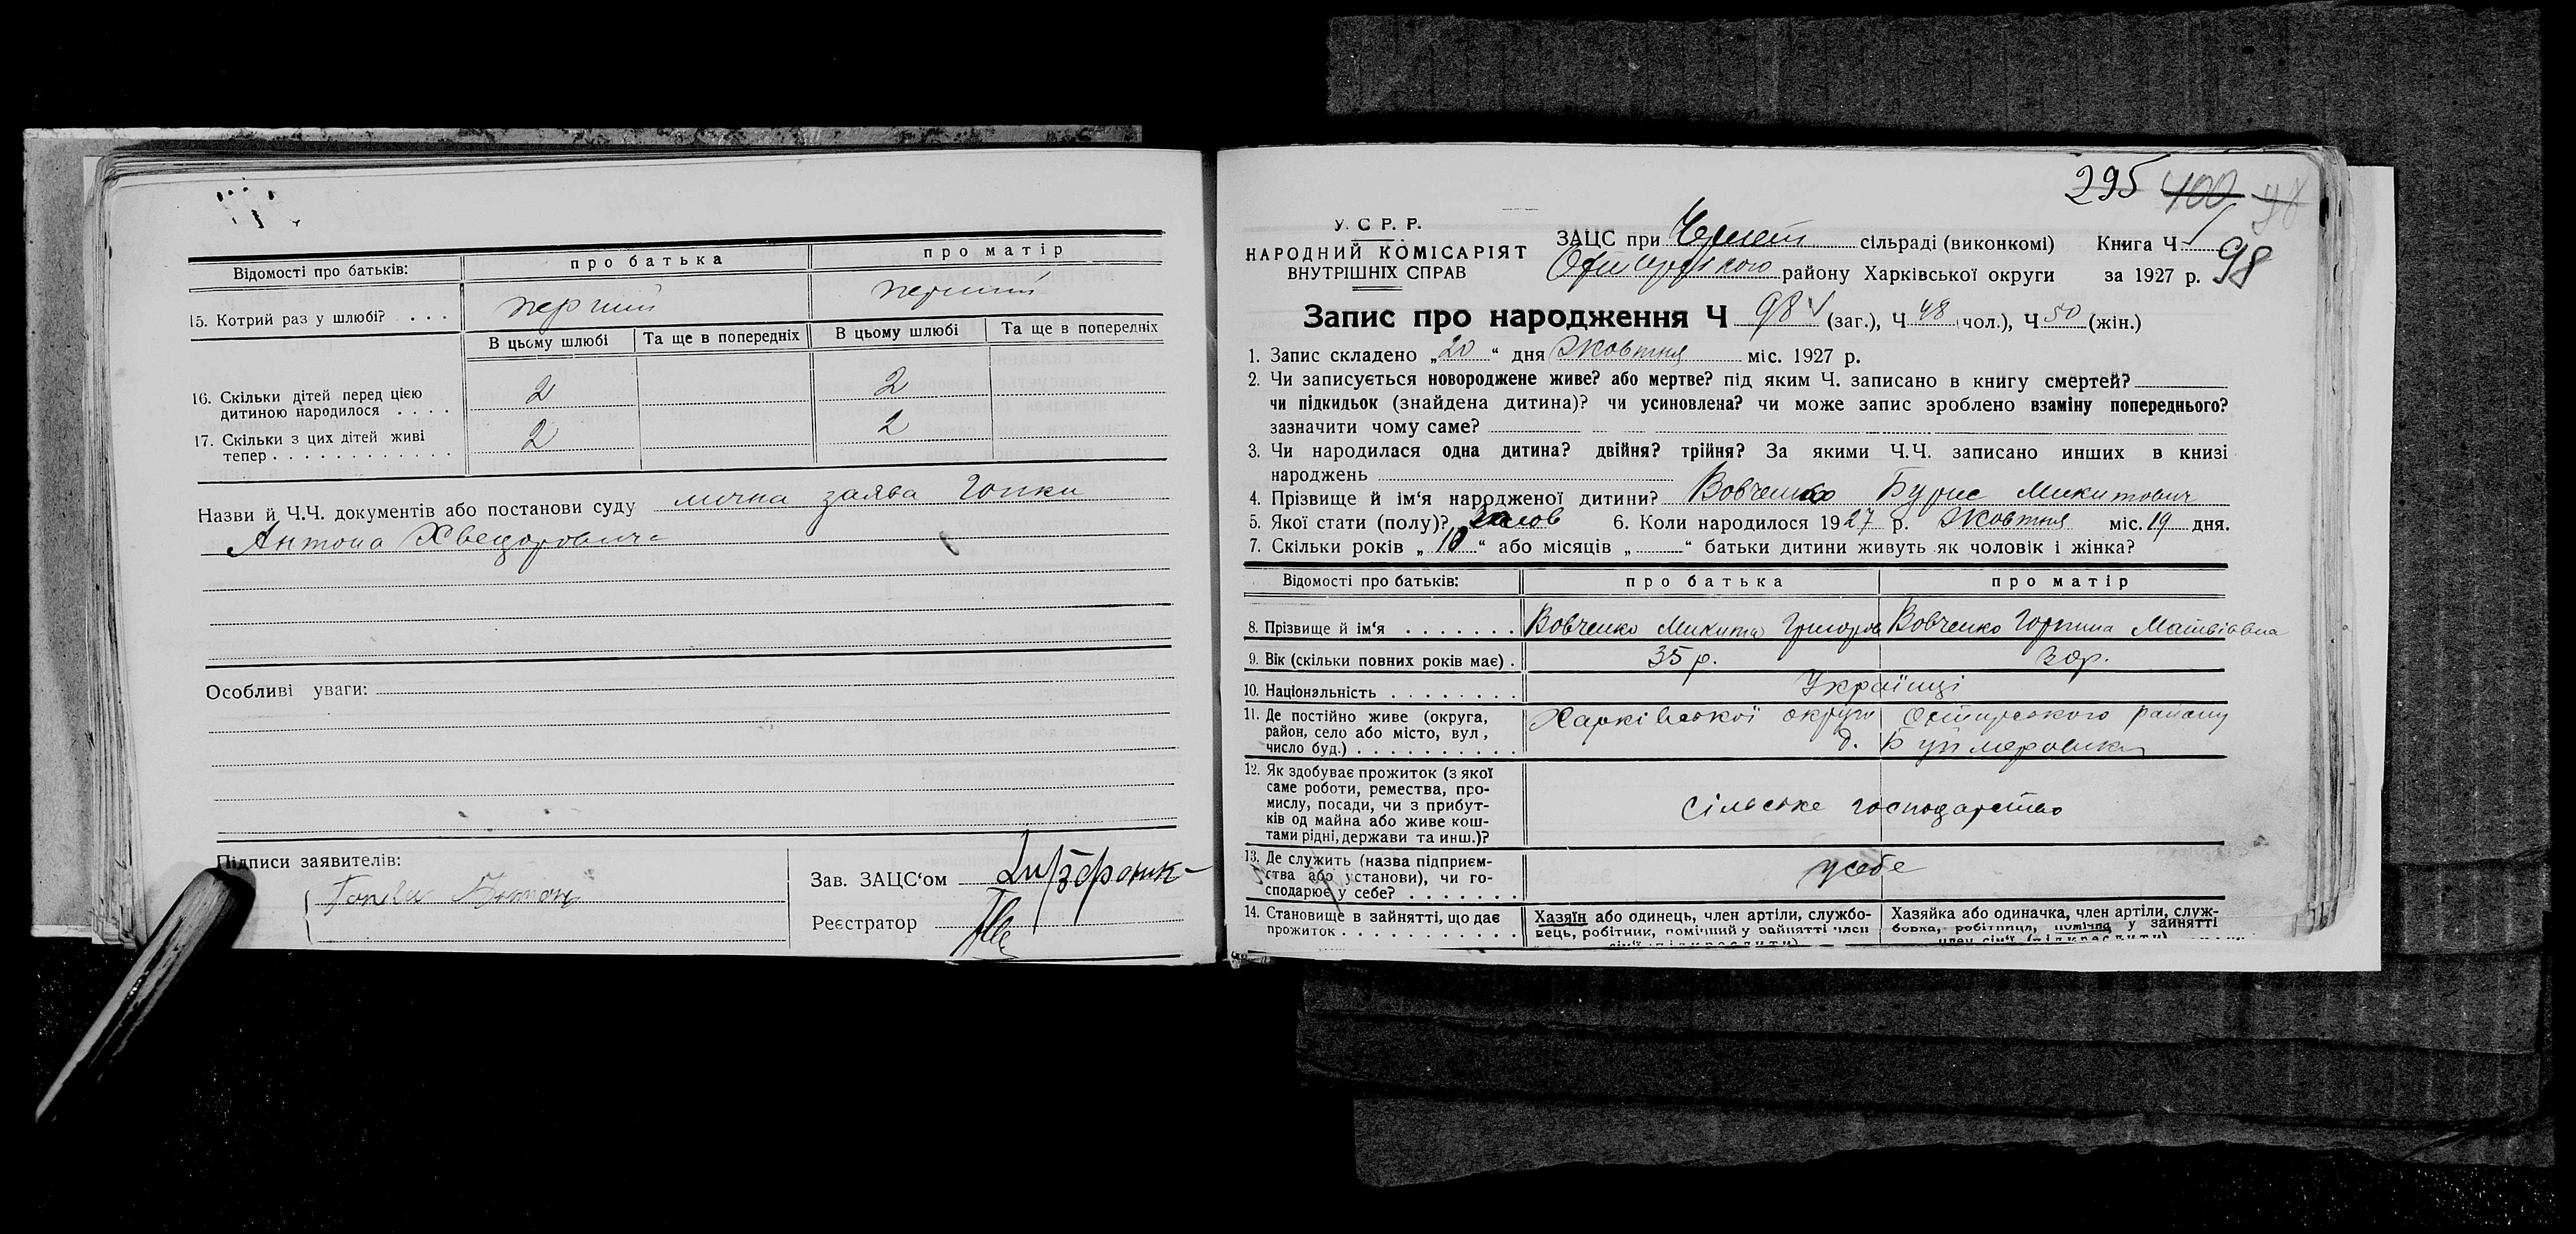 Відомості про батьків:
про батька
про матір
15. Котрий раз у шлюбі? . . .
перший
перший
В цьому шлюбі
Та ще в попередніх
В цьому шлюбі
Та ще в попередніх
16. Скільки дітей перед цією
дитиною народилося . . . .
2
2
17. Скільки з цих дітей живі
тепер . . . . . . . . . . . .
2
2
Назви й Ч.Ч. документів або постанови суду лична заява Гопки
Антона Хведоровича
Особливі уваги:
Підписи заявителів:
Гопка Антон
Зав. ЗАЦС'ом
Реєстратор
295 400 98
У. С. Р. Р.
НАРОДНИЙ КОМІСАРІЯТ
ВНУТРІШНІХ СПРАВ
ЗАЦС при сільраді (виконкомі) Книга Ч 1
району Харківської округи за 1927 р. 98
Запис про народження Ч 98 (заг.), Ч 48 (чол.), Ч 50 (жін.)
1. Запис складено „20“ дня Жовтня міс. 1927 р.
2. Чи записується новороджене живе? або мертве? під яким Ч. записано в книгу смертей?
чи підкидьок (знайдена дитина)? чи усиновлена? чи може запис зроблено взаміну попереднього?
зазначити чому саме?
3. Чи народилася одна дитина? двійня? трійня? За якими Ч.Ч. записано инших в книзі
народжень
4. Прізвище й ім'я народженої дитини? Вовченко Бурис Микитович
5. Якої стати (полу)? 6. Коли народилося 1927 р. Жовтня міс. 19 дня.
7. Скільки років „10“ або місяців „ “ батьки дитини живуть як чоловік і жінка?
Відомості про батьків:
про батька
про матір
8. Прізвище й ім'я . . . . . . .
Вовченко Микита Григоров
Вовченко Горпина Матвіівна
9. Вік (скільки повних років має) .
35 р.
30 р.
10. Національність . . . . . . . .
Українці
11. Де постійно живе (округа,
район, село або місто, вул.,
число буд.) . . . . . . . . . .
Харківської округи Охтирського району
д. Буймеровка
12. Як здобуває прожиток (з якої
саме роботи, ремества, про-
мислу, посади, чи з прибут-
ків од майна або живе кош-
тами рідні, держави та инш.)?
Сільське господарство
13. Де служить (назва підприєм-
ства або установи), чи го-
сподарює у себе? . . . . . . .
у себе
14. Становище в зайнятті, що дає
прожиток . . . . . . . . . . .
Хазяїн або одинець, член артіли, службо-
вець, робітник, помічний у зайнятті член
сім'ї (підкреслити)
Хазяйка або одиначка, член артіли, служ-
бовка, робітниця, помічна у зайнятті
член сім'ї (підкреслити)